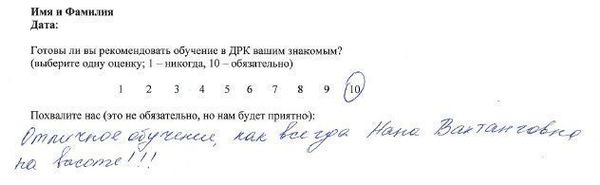 Имя и Фамилия
Дата:
Готовы ли вы рекомендовать обучение в ДРК вашим знакомым?
(выберите одну оценку; 1 – никогда, 10 – обязательно)
1 2 3 4 5 6 7 8 9 10
Похвалите нас (это не обязательно, но нам будет приятно):
Отличное обучение, как всегда Нана Вахтанговна
на высоте!!!